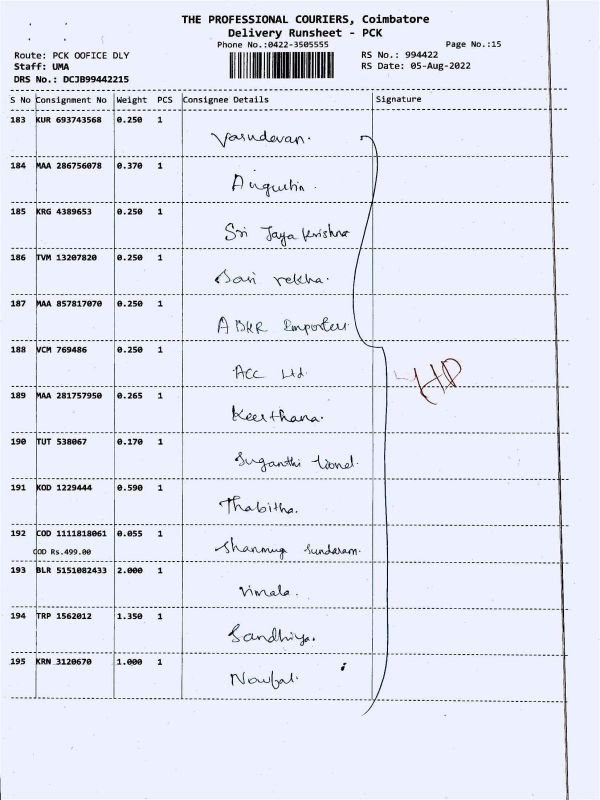 THE PROFESSIONAL COURIERS, Coimbatore
Delivery Runsheet - PCK
Phone No.:0422-3505555
Page No.:15
Route: PCK OOFICE DLY
RS No.: 994422
Staff: UMA
RS Date: 05-Aug-2022
DRS No.: DCJB99442215
S No Consignment No Weight PCS Consignee Details Signature
183 KUR 693743568 0.250 1
Vasudevan.
184 MAA 286756078 0.370 1
Augustin.
185 KRG 4389653 0.250 1
Sri Jaya Krishna
186 TVM 13207820 0.250 1
Sasi rekha.
187 MAA 857817070 0.250 1
ABKR Emporter
188 VCM 769486 0.250 1
ACC Ltd.
HP
189 MAA 281757950 0.265 1
Keerthana.
190 TUT 538067 0.170 1
Suganthi Lionel.
191 KOD 1229444 0.590 1
Thabitha.
192 COD 1111818061 0.055 1
COD Rs.499.00
Shanmuga Sundaram.
193 BLR 5151082433 2.000 1
Vimala.
194 TRP 1562012 1.350 1
Sandhiya.
195 KRN 3120670 1.000 1
Nowfal.